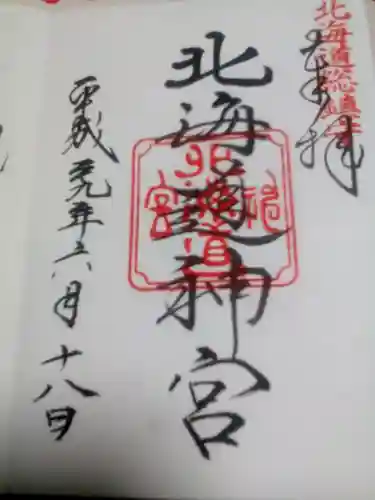 北海道総鎮守
奉拝
北海道神宮
北海道神宮
平成二十九年六月十八日